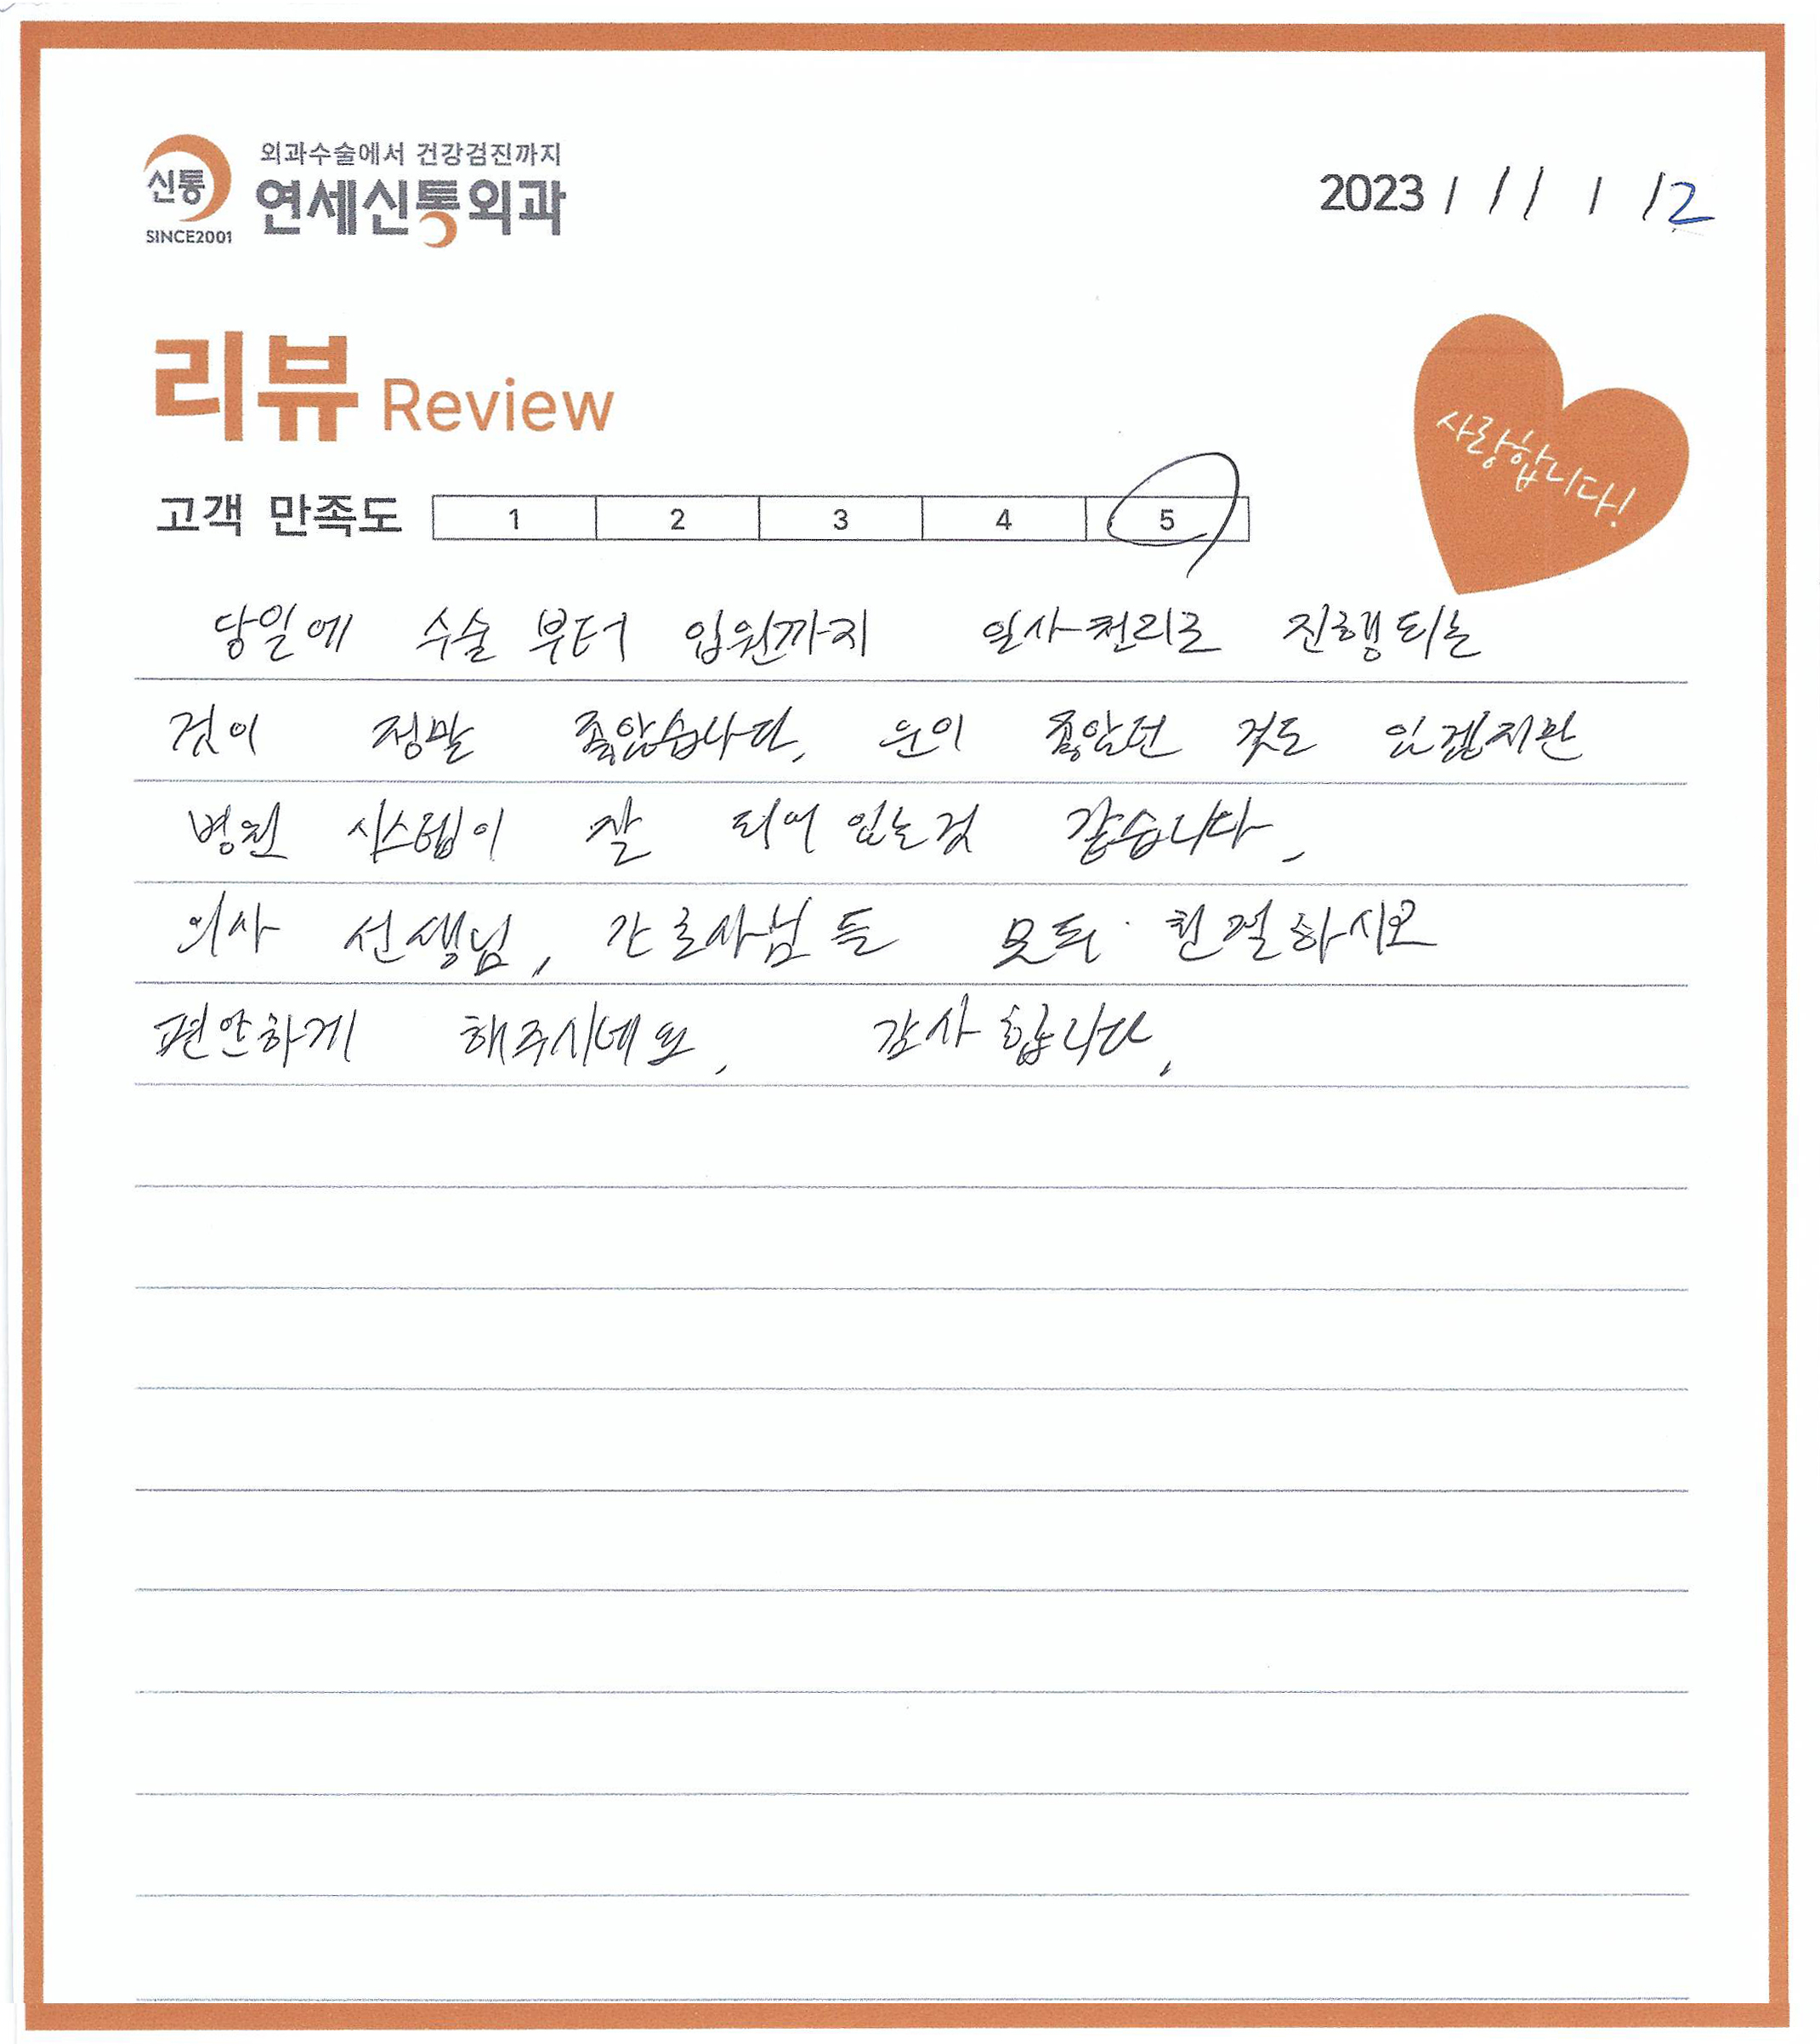 외과수술에서 건강검진까지
신통 연세신통외과
SINCE2001
2023 / 11 / 12
리뷰 Review
사랑합니다!
고객 만족도 1 2 3 4 5
당일에 수술 부터 입원까지 일사천리로 진행되는
것이 정말 좋았습니다. 운이 좋았던 것도 있겠지만
병원 시스템이 잘 되어 있는것 같습니다.
의사 선생님, 간호사님들 모두 친절하시고
편안하게 해주시네요. 감사합니다.